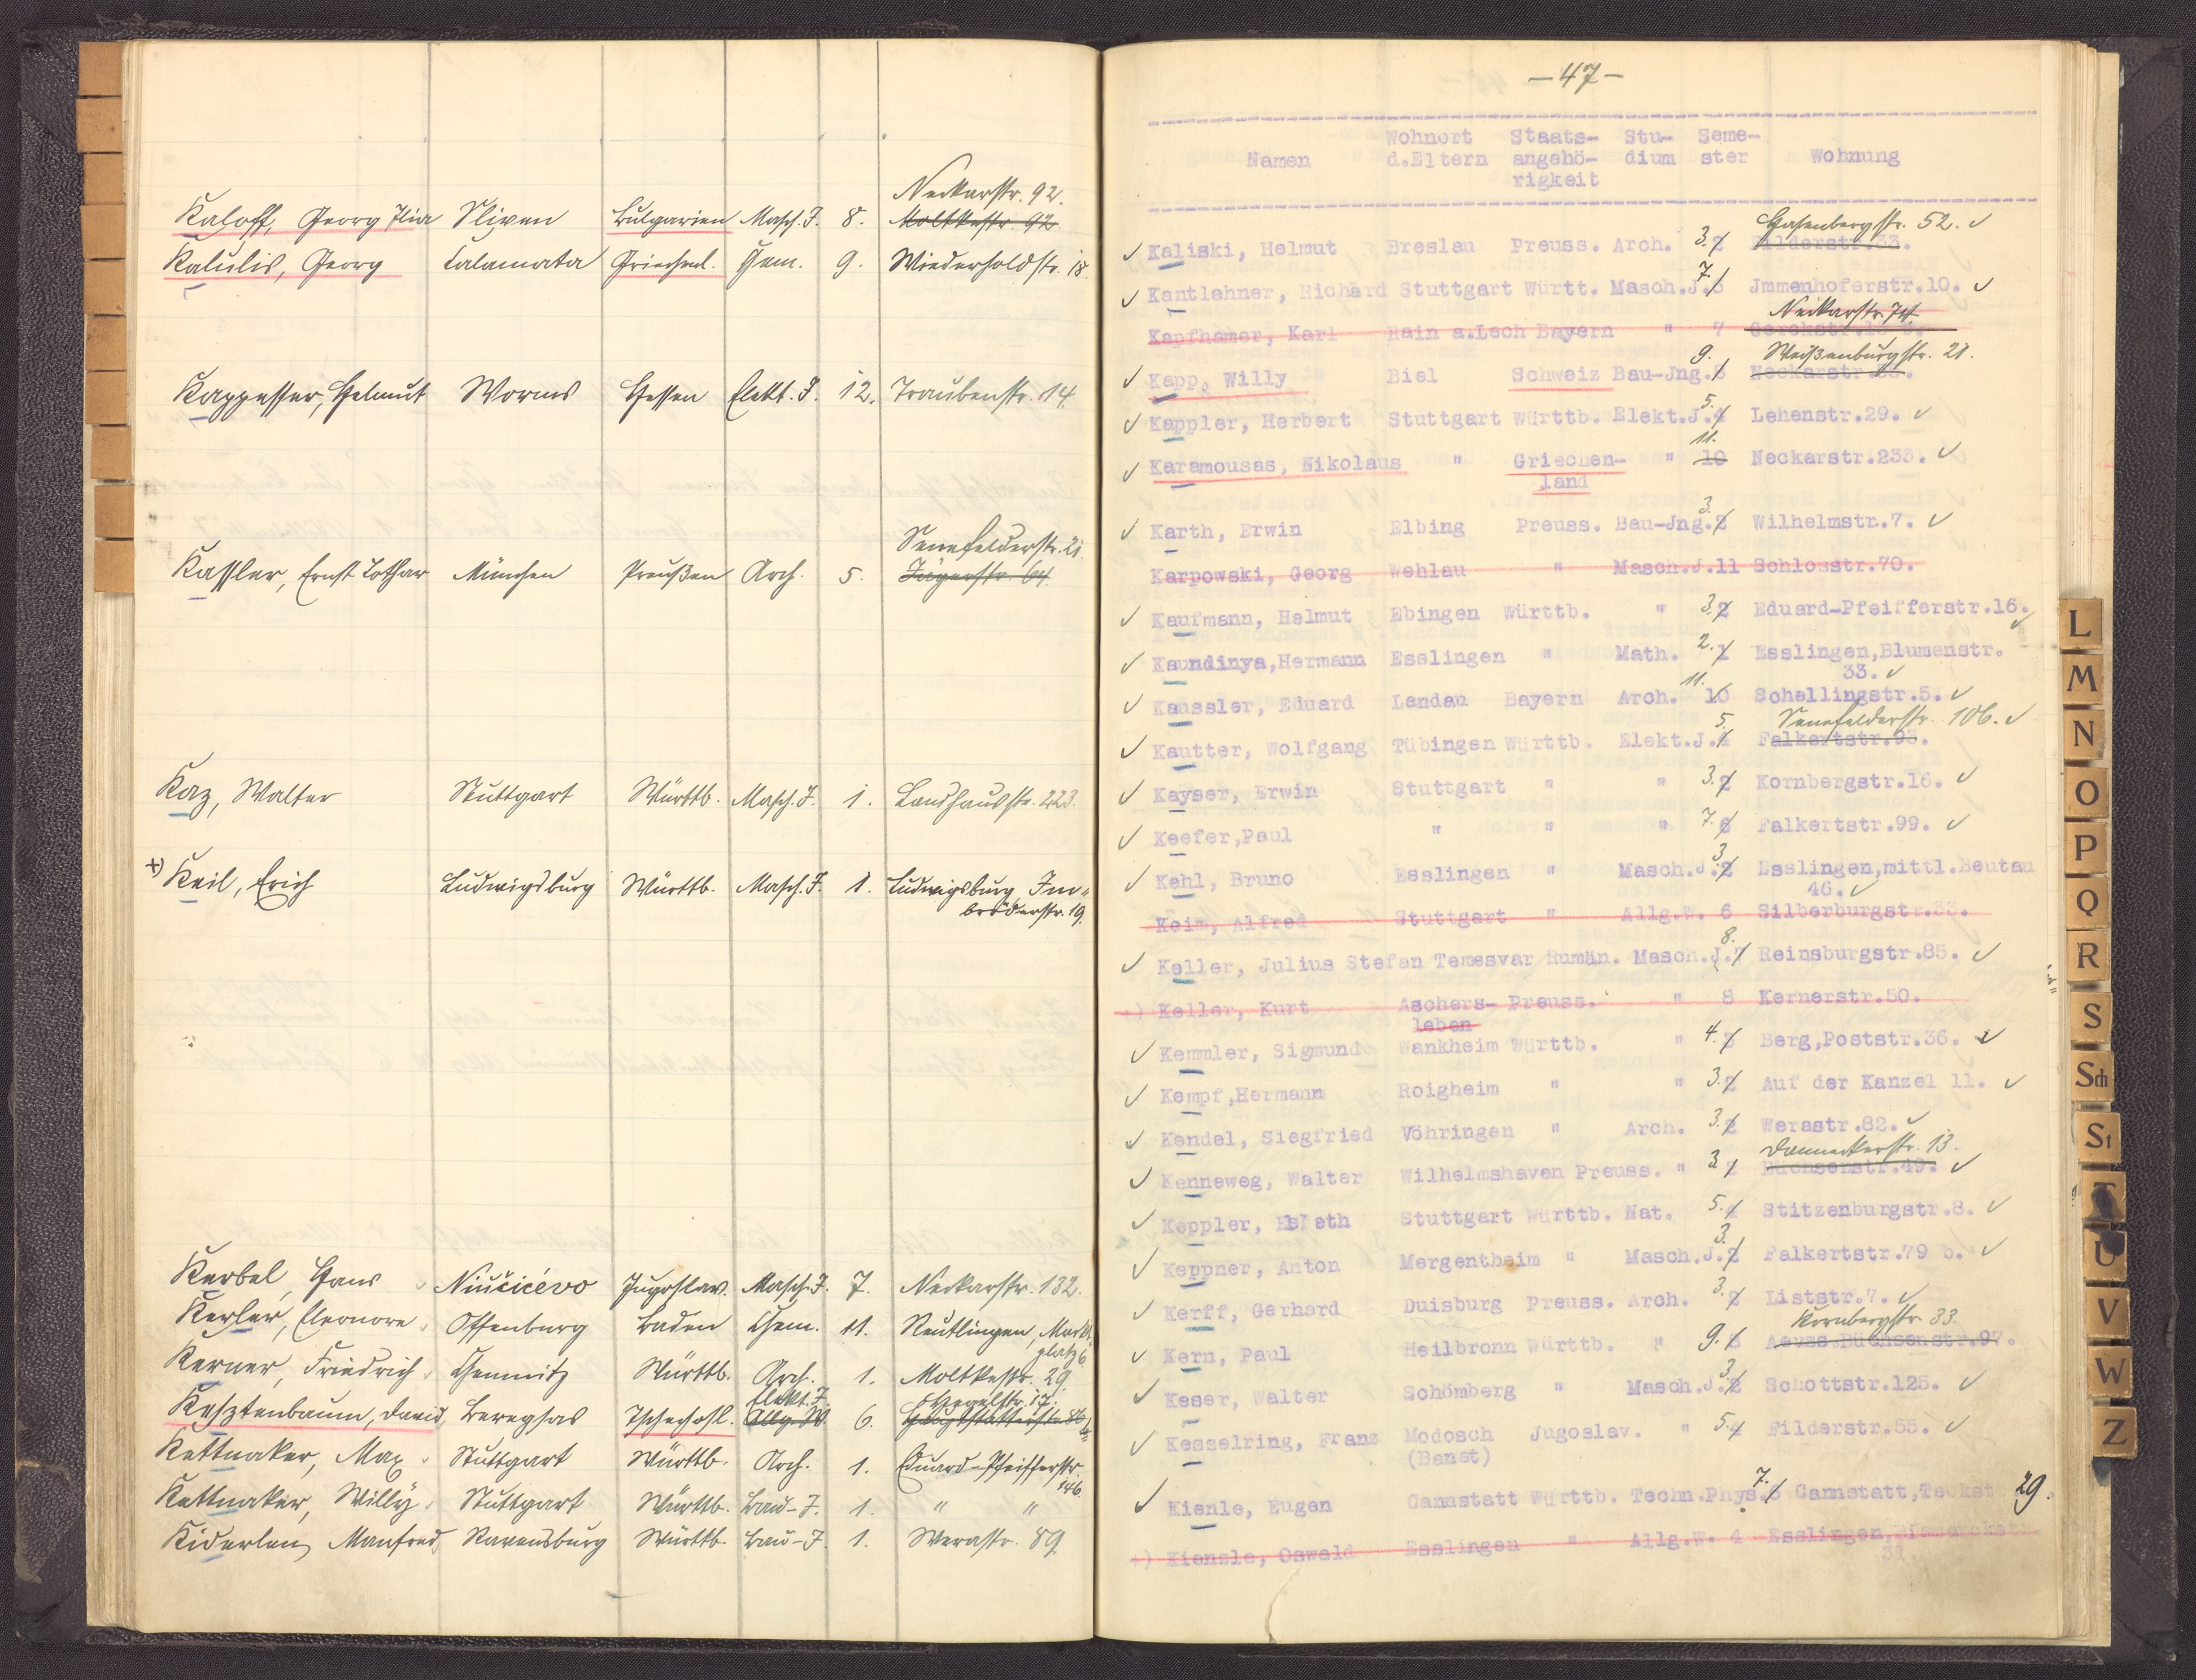 Neckarstr. 92.
Kaloff, Georg Ilia Sliven Bulgarien Masch.I. 8. Moltkestr. 92
Kalulis, Georg Calamata Griechenl. Chem. 9. Wiederholdstr. 18.
Kappesser, Helmut Worms Hessen Elekt.I. 12. Traubenstr. 14.
Senefelderstr. 21.
Kassler, Ernst Lothar München Preußen Arch. 5. Jägerstr. 64.
Kaz, Walter Stuttgart Württb. Masch.I. 1. Landhausstr. 223.
+) Keil, Erich Ludwigsburg Württb. Masch.I. 1. Ludwigsburg, Im-
bröderstr. 19.
Kerbel, Hans Jugoslav. Masch.I. 7. Neckarstr. 132.
Kerler, Eleonore Offenburg Baden Chem. 11. Reutlingen, Markt-
platz 6.
Kerner, Friedrich Chemnitz Württb. Arch. 1. Moltkestr. 29.
Elekt.I. Hegelstr. 17.
Kesztenbaum, David Beregsas Tschechosl. Allg.W. 6.
Kettnaker, Max Stuttgart Württb. Arch. 1. Eduard-Pfeifferstr.
146.
Kettnaker, Willy Stuttgart Württb. Bau-I. 1. " "
Kiderlen, Manfred Ravensburg Württb. Bau-I. 1. Werastr. 89.
-47-
Wohnort Staats- Stu- Seme-
Namen d.Eltern angehö- dium ster Wohnung
rigkeit
Hasenbergstr. 52. ✓
✓ Kaliski, Helmut Breslau Preuss. Arch. 3. 2 Filderstr.33.
7.
✓ Kantlehner, Richard Stuttgart Württ. Masch.J.6 Jmmenhoferstr.10. ✓
Neckarstr. 74.
Kapfhamer, Karl Rain a.Lech Bayern " 7
9. Weißenburgstr. 21.
✓ Kapp, Willy Biel Schweiz Bau-Jng.8 Neckarstr.
5.
✓ Kappler, Herbert Stuttgart Württb. Elekt.J.4 Lehenstr.29. ✓
11.
✓ Karamousas, Nikolaus " Griechen- " 10 Neckarstr.233. ✓
land
3.
✓ Karth, Erwin Elbing Preuss. Bau-Jng.2 Wilhelmstr.7. ✓
Karpowski, Georg Wehlau " Masch.J.11 Schlosstr.70.
✓ Kaufmann, Helmut Ebingen Württb. " 3. 2 Eduard-Pfeifferstr.16. ✓
✓ Kaundinya,Hermann Esslingen " Math. 2. 1 Esslingen,Blumenstr.
11. 33. ✓
✓ Kaussler, Eduard Landau Bayern Arch. 10 Schellingstr.5. ✓
5. Senefelderstr. 106. ✓
✓ Kautter, Wolfgang Tübingen Württb. Elekt.J.4 Falkertstr.93.
✓ Kayser, Erwin Stuttgart " " 3. 2 Kornbergstr.16. ✓
✓ Keefer,Paul " " " 7. 6 Falkertstr.99. ✓
3.
✓ Kehl, Bruno Esslingen " Masch.J.2 Esslingen,mittl.Beutau
46. ✓
Keim, Alfred Stuttgart " Allg.W. 6 Silberburgstr.33.
8.
✓ Keller, Julius Stefan Temesvar Rumän. Masch.J.7 Reinsburgstr.85. ✓
+) Keller, Kurt Aschers- Preuss. " 8 Kernerstr.50.
leben
✓ Kemmler, Sigmund Wankheim Württb. " 4. 3 Berg,Poststr.36. ✓
✓ Kempf,Hermann Roigheim " " 3. 2 Auf der Kanzel 11. ✓
✓ Kendel, Siegfried Vöhringen " Arch. 3. 2 Werastr.82. ✓
Danneckerstr. 13.
✓ Kenneweg, Walter Wilhelmshaven Preuss. " 2 1 Büchsenstr.49. ✓
✓ Keppler, Stuttgart Württb. Nat. 5. 4 Stitzenburgstr.8. ✓
3.
✓ Keppner, Anton Mergentheim " Masch.J.2 Falkertstr.79 b. ✓
✓ Kerff, Gerhard Duisburg Preuss. Arch. 3. 2 Liststr.7. ✓
Kornbergstr. 33.
✓ Kern, Paul Heilbronn Württb. " 9. 8 Aeuss.Büchsenstr.97.
3.
✓ Keser, Walter Schömberg " Masch.J.2 Schottstr.125. ✓
✓ Kesselring, Franz Modosch Jugoslav. " 5. 4 Filderstr.55. ✓
(Banat)
7.
✓ Kienle, Eugen Cannstatt Württb. Techn.Phys.6 Cannstatt,Teckst 29.
+) Kienzle, Oswald Esslingen " Allg.W. 4 Esslingen,
L
M
N
O
P
Q
R
S
Sch
St
T
U
V
W
Z